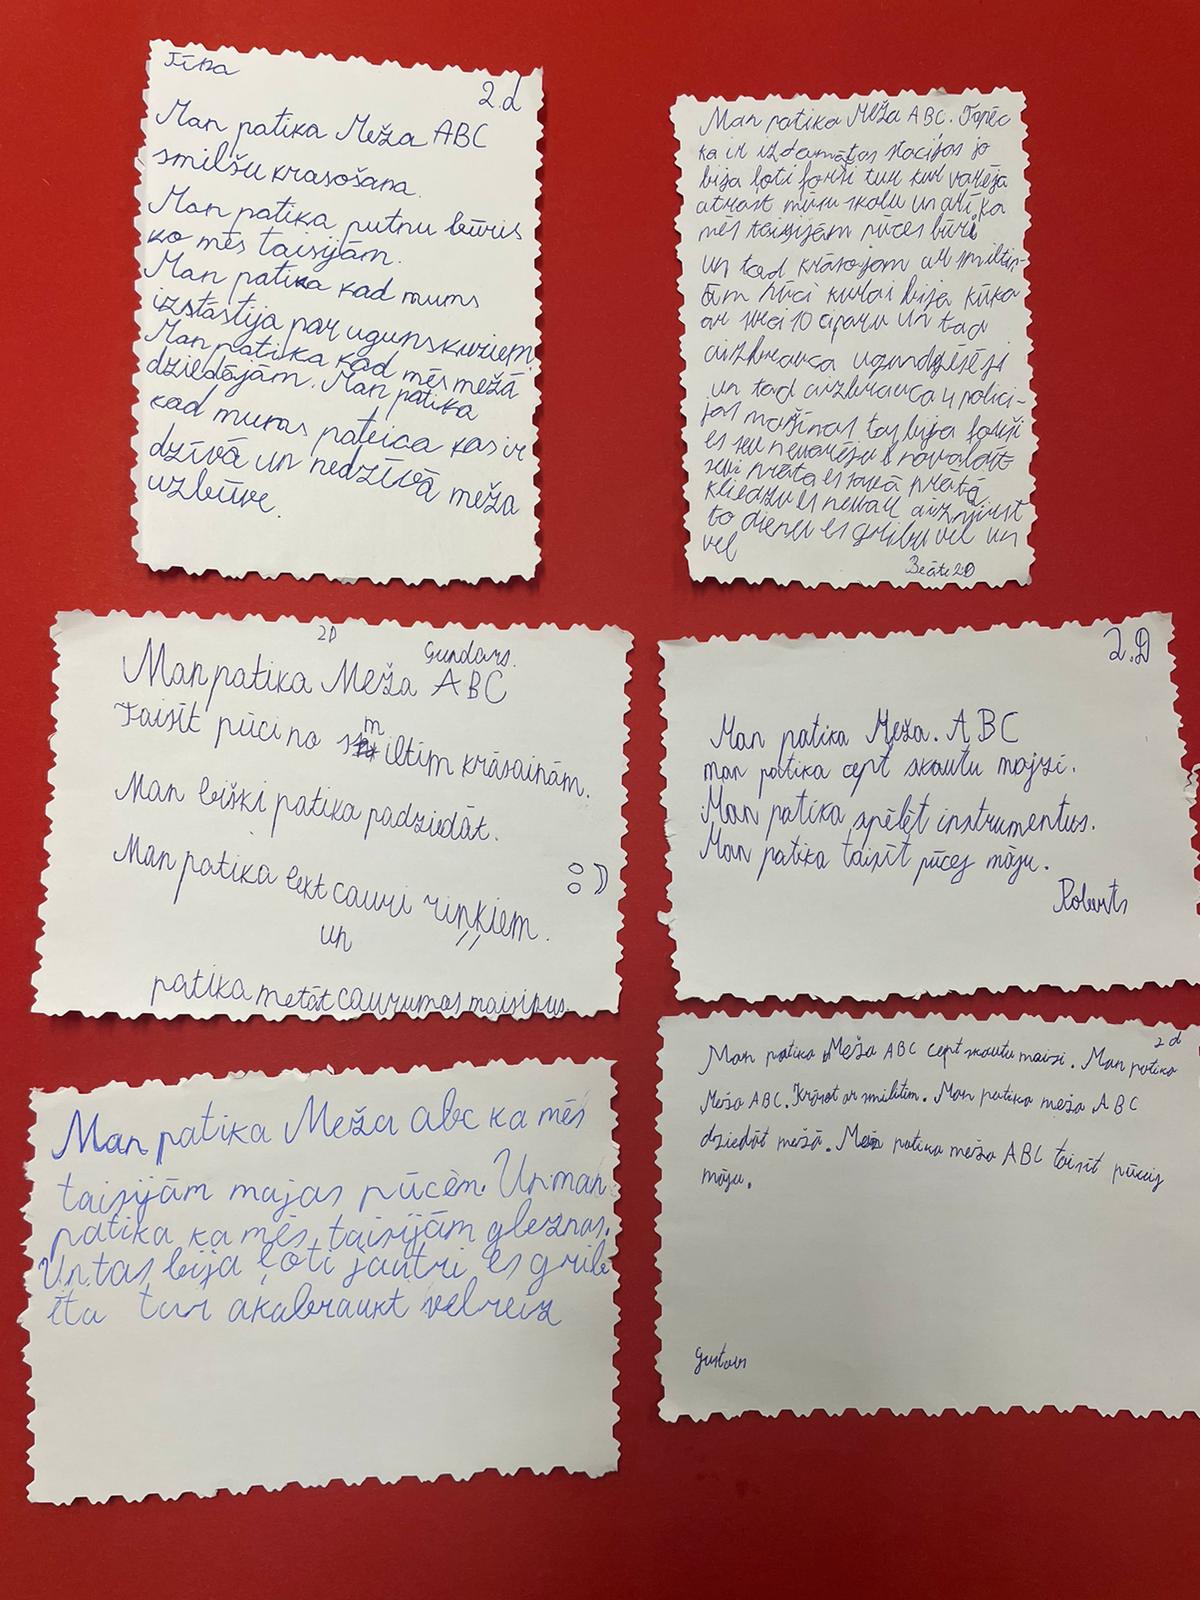 2.d
Man patika Meža ABC
smilšu krasošana.
Man patika putnu būris
ko mēs taisijām.
Man patika kad mums
izstāstija par ugunskuriem.
Man patika kad mēs mežā
dziedājām. Man patika
kad mums pateica kas ir
dzīvā un nedzīvā meža
uzbūve.
Man patika Meža ABC. Tapēc
ka ir izdamātas stacijas jo
bija ļoti forši tur kur varēja
atrast mūsu skolu un arī ka
mēs taisijām pūces būri
un tad krāsojam ar smiltis-
ar 10 ciparu un tad
aizbrauca ugundzēsēji
un tad aizbrauca 4 polici-
jas mašīnas tas bija forši
es sevi nevarēju novaldīt
savā prātā
kliedzu es nevaru aizmirst
to dienu es gribu vēl un
vel
Beāte 2D
2D
Gundars.
Man patika Meža ABC
Taisīt pūci no smiltim krāsainām.
Man biški patika padziedāt.
Man patika lekt cauri riņķiem.
un
patika metāt caurumos maisiņus.
2.D
Man patika Meža. ABC
man patika cept skautu majzi.
Man patika spēlēt instrumentus.
Man patika taisīt pūces māju.
Roberts
Man patika Meža abc ka mēs
taisijām majas pūcēm. Un man
patika ka mēs taisijām gleznas.
Un tas bija ļoti jautri es grib
ēta tur akabraukt velreiz
2 d
Man patika Meža ABC cept skautu maizi. Man patika
Meža ABC. Krāsot ar smiltim. Man patika meža ABC
dziedāt mežā. Man patika meža ABC taisīt pūcij
māju.
Gustavs